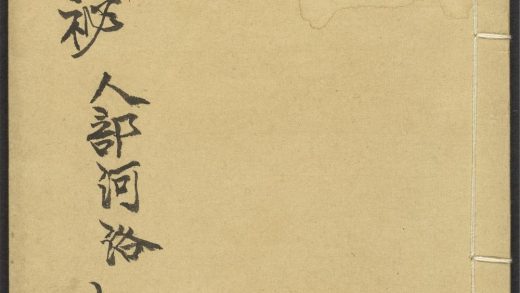 祕
人部河洛